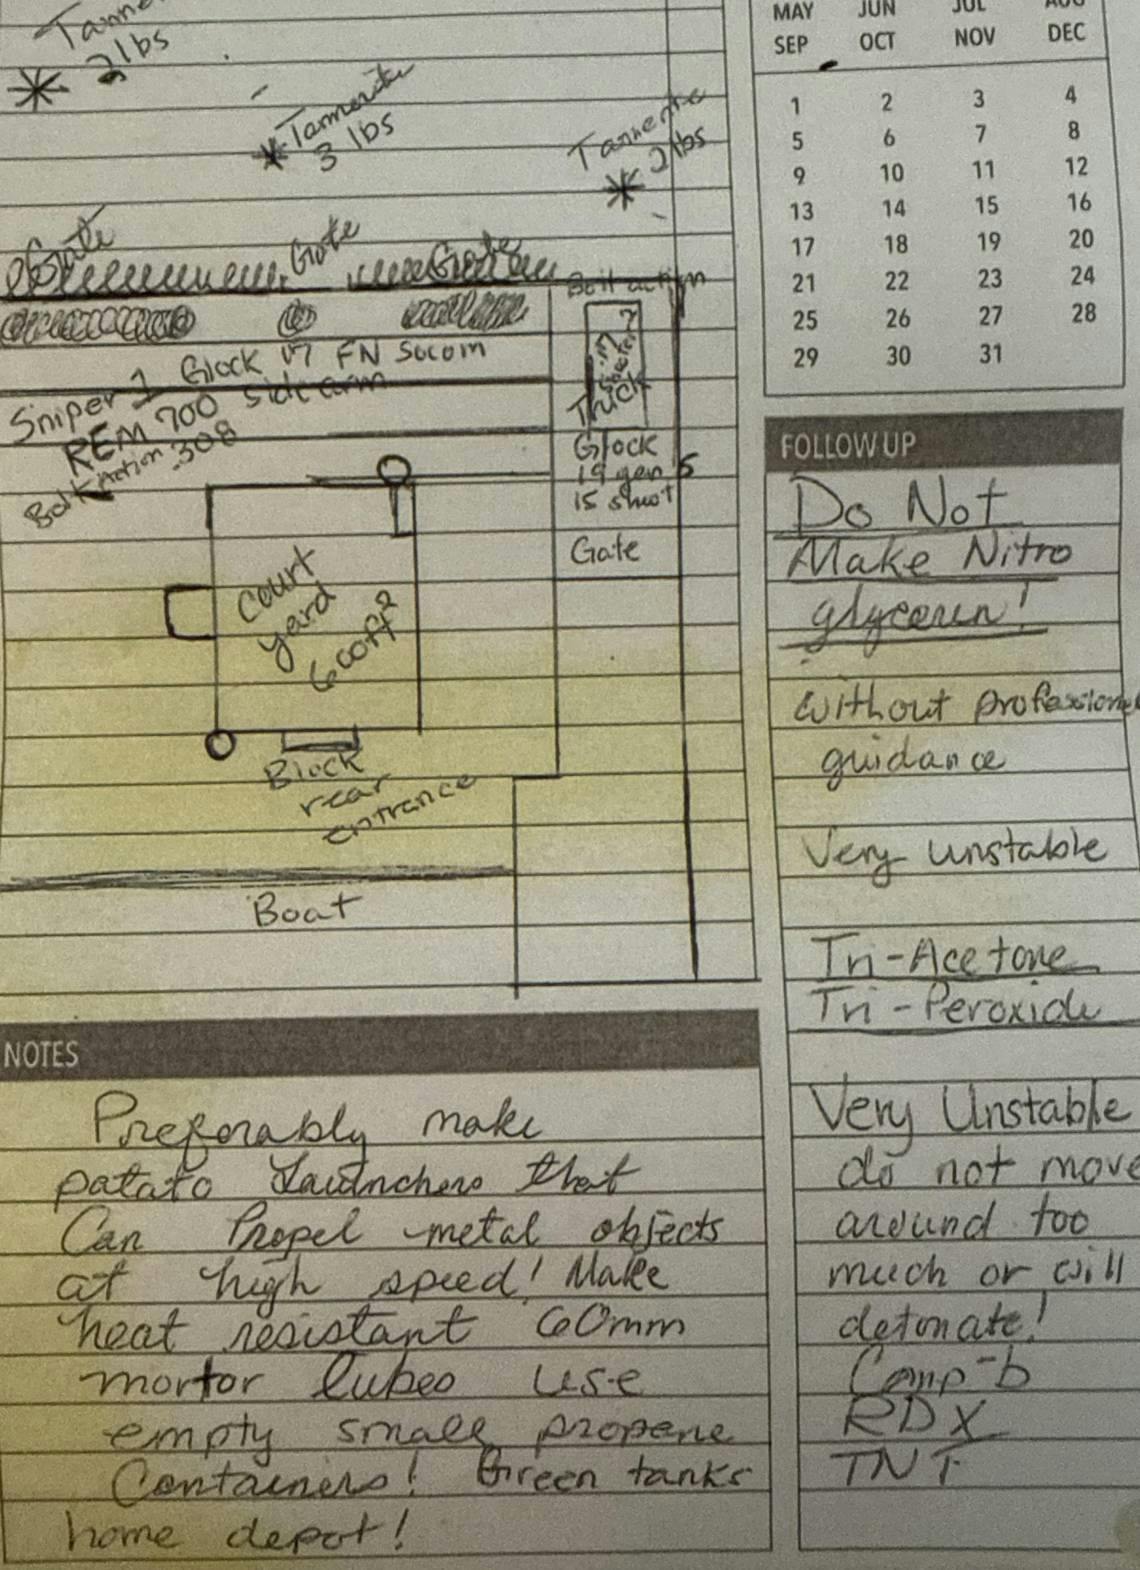 Tanne
2 lbs
Tannerite
3 lbs
Tannerite
2 lbs
MAY JUN JUL AUG
SEP OCT NOV DEC
1 2 3 4
5 6 7 8
9 10 11 12
13 14 15 16
17 18 19 20
21 22 23 24
25 26 27 28
29 30 31
Gate
Gate
Gate
Bolt action
Sniper 1 Glock 17 FN Socom
REM 700 side arm
Bolt Action .308
Truck
Glock
19 gen 5
15 shot
Gate
Court
yard
600ft²
Block
rear
entrance
Boat
FOLLOW UP
Do Not
Make Nitro
glyceren!
without professional
guidance
Very unstable
Tri-Acetone
Tri-Peroxide
Very Unstable
do not move
around too
much or will
detonate!
Comp-b
RDX
TNT
NOTES
Preferably make
patato launchers that
Can Propel metal objects
at high speed! Make
heat resistant 60mm
mortor tubes use
empty small propene
Containers! Green tanks
home depot!